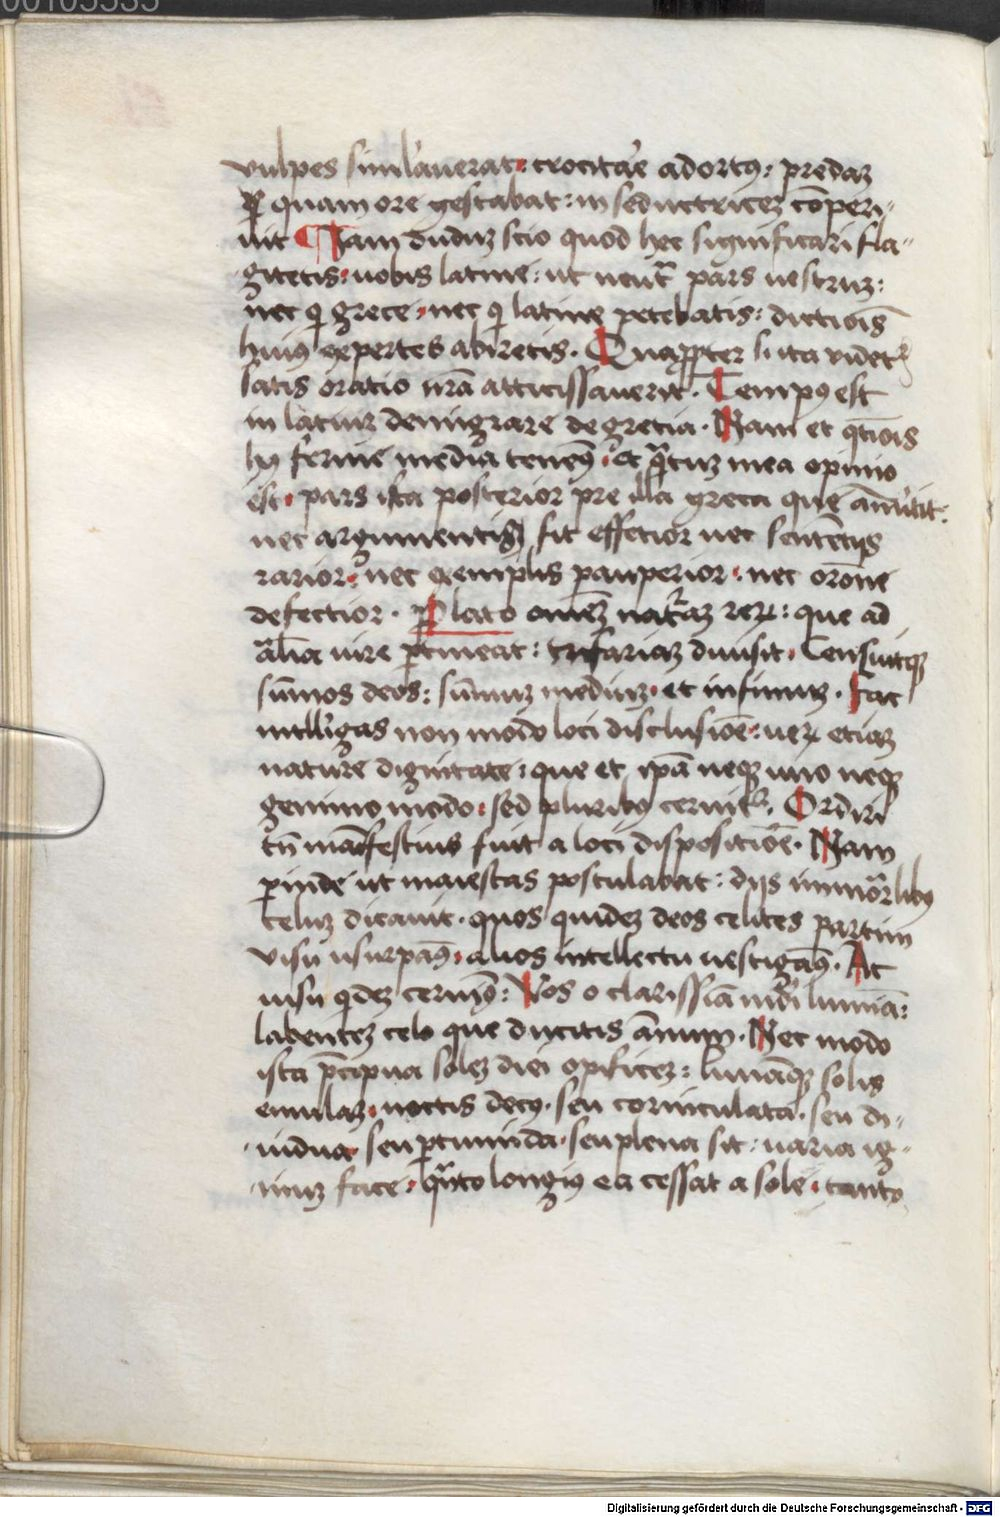 00105535
vulpes simulauerat: crocitare adortus: predaz
quam ore gestabat: in seductricez comperu-
uit Jam duduz scio quod hec significari fla-
gitetis: uobis latine: ut neutra pars uestruz:
nec qi grece: nec qi latine petebatis: dictiois
huius expertes abiretis. Quapropter si ita videtur
satis oratio nra atticissauerit. Tempus est
in latiuz demigrare de grecia. Nam et qtiois
hius ferme media tenemus: et quantuz mea opinio
est: pars ista posterior pre illa greca que anteuertit:
nec argumentis sit effetior nec sententijs
rarior: nec exemplis pauperior: nec oratione
defectior. Plato omnez naturaz rerum: que ad
animalia iure pertineat: trifariaz diuisit. Censuitque
summos deos: summuz mediuz: et infimuz. Fac
intelligas non modo loci disclusione: uerum etiaz
nature dignitate: que et ipsa neque uno neque
gemino modo: sed pluribus cernitur. Ordiri
tamen manifestius fuit a loci dispositione. Nam
perinde ut maiestas postulabat: dijs immortalibus
celuz dicauit. quos quidez deos celites partim
visu usurpamus: alios intellectu uestigamus. At
uisu quidez cernimus: Vos o clarissima mundi lumina:
labentez celo que ducitis annum. Nec modo
ista precipua solez diei opificez: lunamque solis
emulaz: noctis decus. seu corniculata. seu di-
uidua. seu protumida. seu plena sit: uaria ig-
niuz face: quanto longius ea cessat a sole: tanto
Digitalisierung gefördert durch die Deutsche Forschungsgemeinschaft - DFG